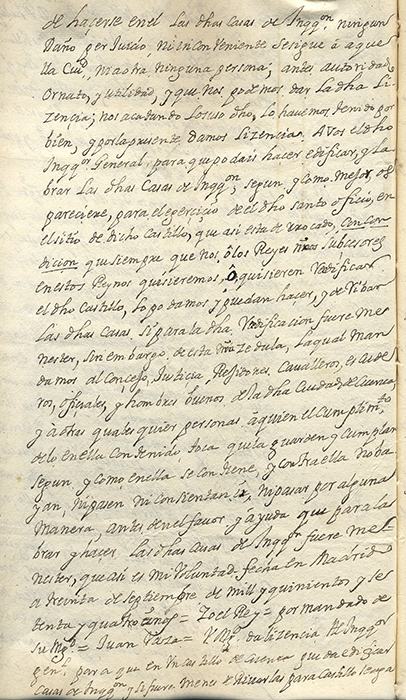 de hacerse en el las dhas Casas de Inqqon ningun
Daño, perjuicio, ni inConveniente se sigue à aque
lla Ciud, ni à otra ninguna persona; antes autoridad
Ornato, y utilidad, y que nos podemos dar la dha Li
zencia; nos acatando lo suso dho, lo havemos tenido por
bien, y por la presente, damos Lizencia. A vos el dho
Inqqor General, para que podais hacer edificar, y La
brar Las dhas Casas de Inqqon, segun y Como mejor, os
pareciere, para el egercicio de el dho santo oficio, en
el sitio de dicho Castillo, que asi esta derrocado, Con Con
dicion que siempre que nos, ô los Reyes nros subcesores
en estos Reynos quisieremos, ô quisieren redificar
el dho Castillo, lo podamos y puedan hacer, y derribar
Las dhas Casas, si para la dha redificacion fuere me
nester, sin embargo, de esta nra Zedula, la qual man
damos al Concejo, Justicia, Regidores, Cavalleros, escude
ros, oficiales, y hombres buenos de la dha Ciudad de Cuenca
y à otras quales quier personas, à quien el Cumplimto
de lo en ella Contenido, toca que la guarden y Cumplan
segun, y como en ella se contiene, y contra ella no va
yan, ni pasen ni Consientan ir, ni pasar por alguna
Manera, antes den el favor y ayuda que para la
brar y hacer, las dhas Casas de Inqqon fuere me
nester, que asi es mi Voluntad. fecha en Madrid
a treinta de septiembre de mill y quinientos y se
tenta y quatro años = Yo el Rey = por mandado de
su Mgd = Juan = V. Mgd da lizencia al Inqqor
genl para que en un Castillo de Cuenca pueda edificar
Casas de Inqqon, y si fuere menester derrivarlas para Castillo